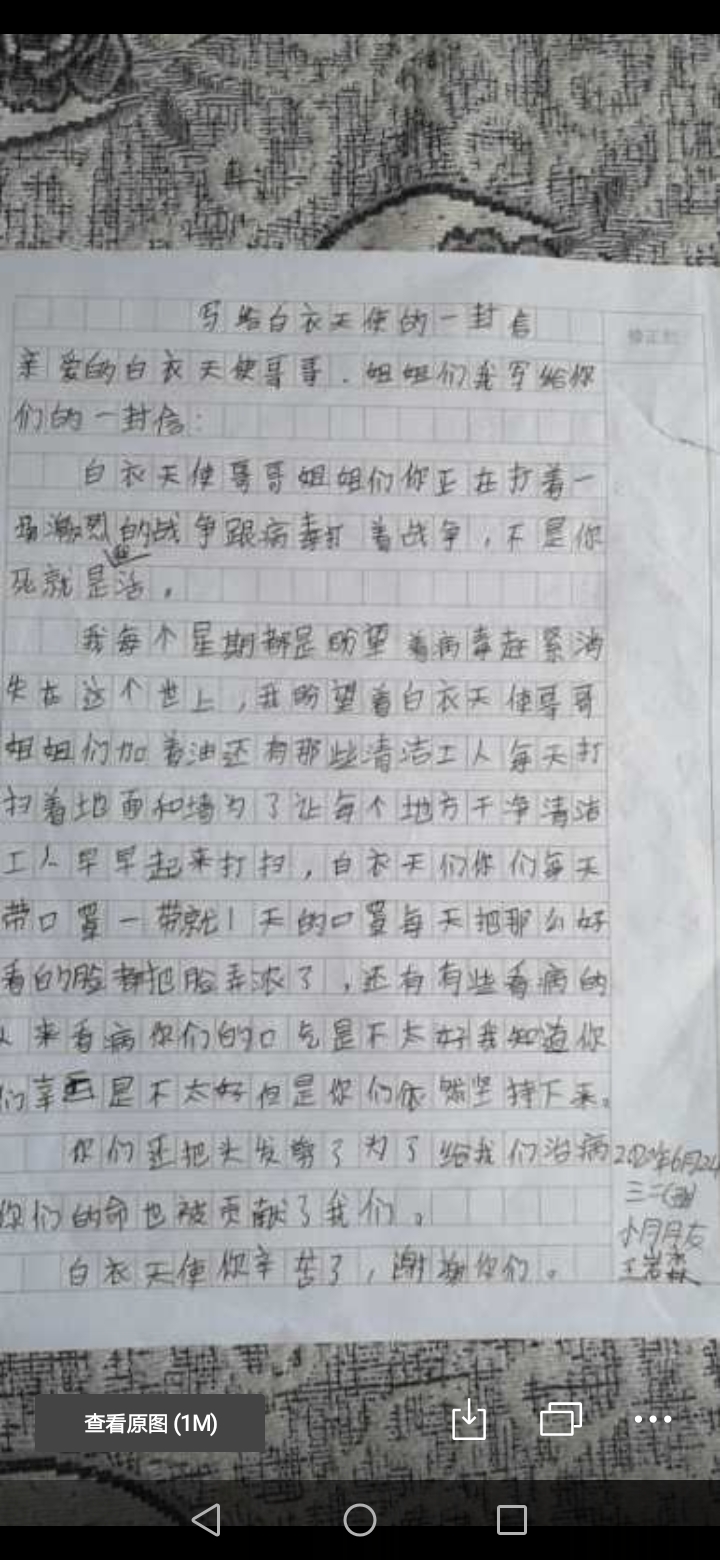 写给白衣天使的一封信
亲爱的白衣天使哥哥．姐姐们我写给你
们的一封信：
白衣天使哥哥姐姐们你正在打着一
场激烈的战争跟病毒打着战争，不是你
死就是活。
我每个星期都是盼望着病毒赶紧消
失在这个世上，我盼望着白衣天使哥哥
姐姐们加着油还有那些清洁工人每天打
扫着地面和墙为了让每个地方干净清洁
工人早早起来打扫，白衣天们你们每天
带口罩一带就1天的口罩每天把那么好
看的脸都把脸弄浓了，还有有些看病的
人来看病你们的口气是不太好我知道你
们是不太好但是你们依然坚持下来。
你们还把头发剪了为了给我们治病
你们的命也被贡献了我们。
白衣天使你辛苦了，谢谢你们。
2020年6月24
三二(班)
小月月友
王岩森
查看原图 (1M)